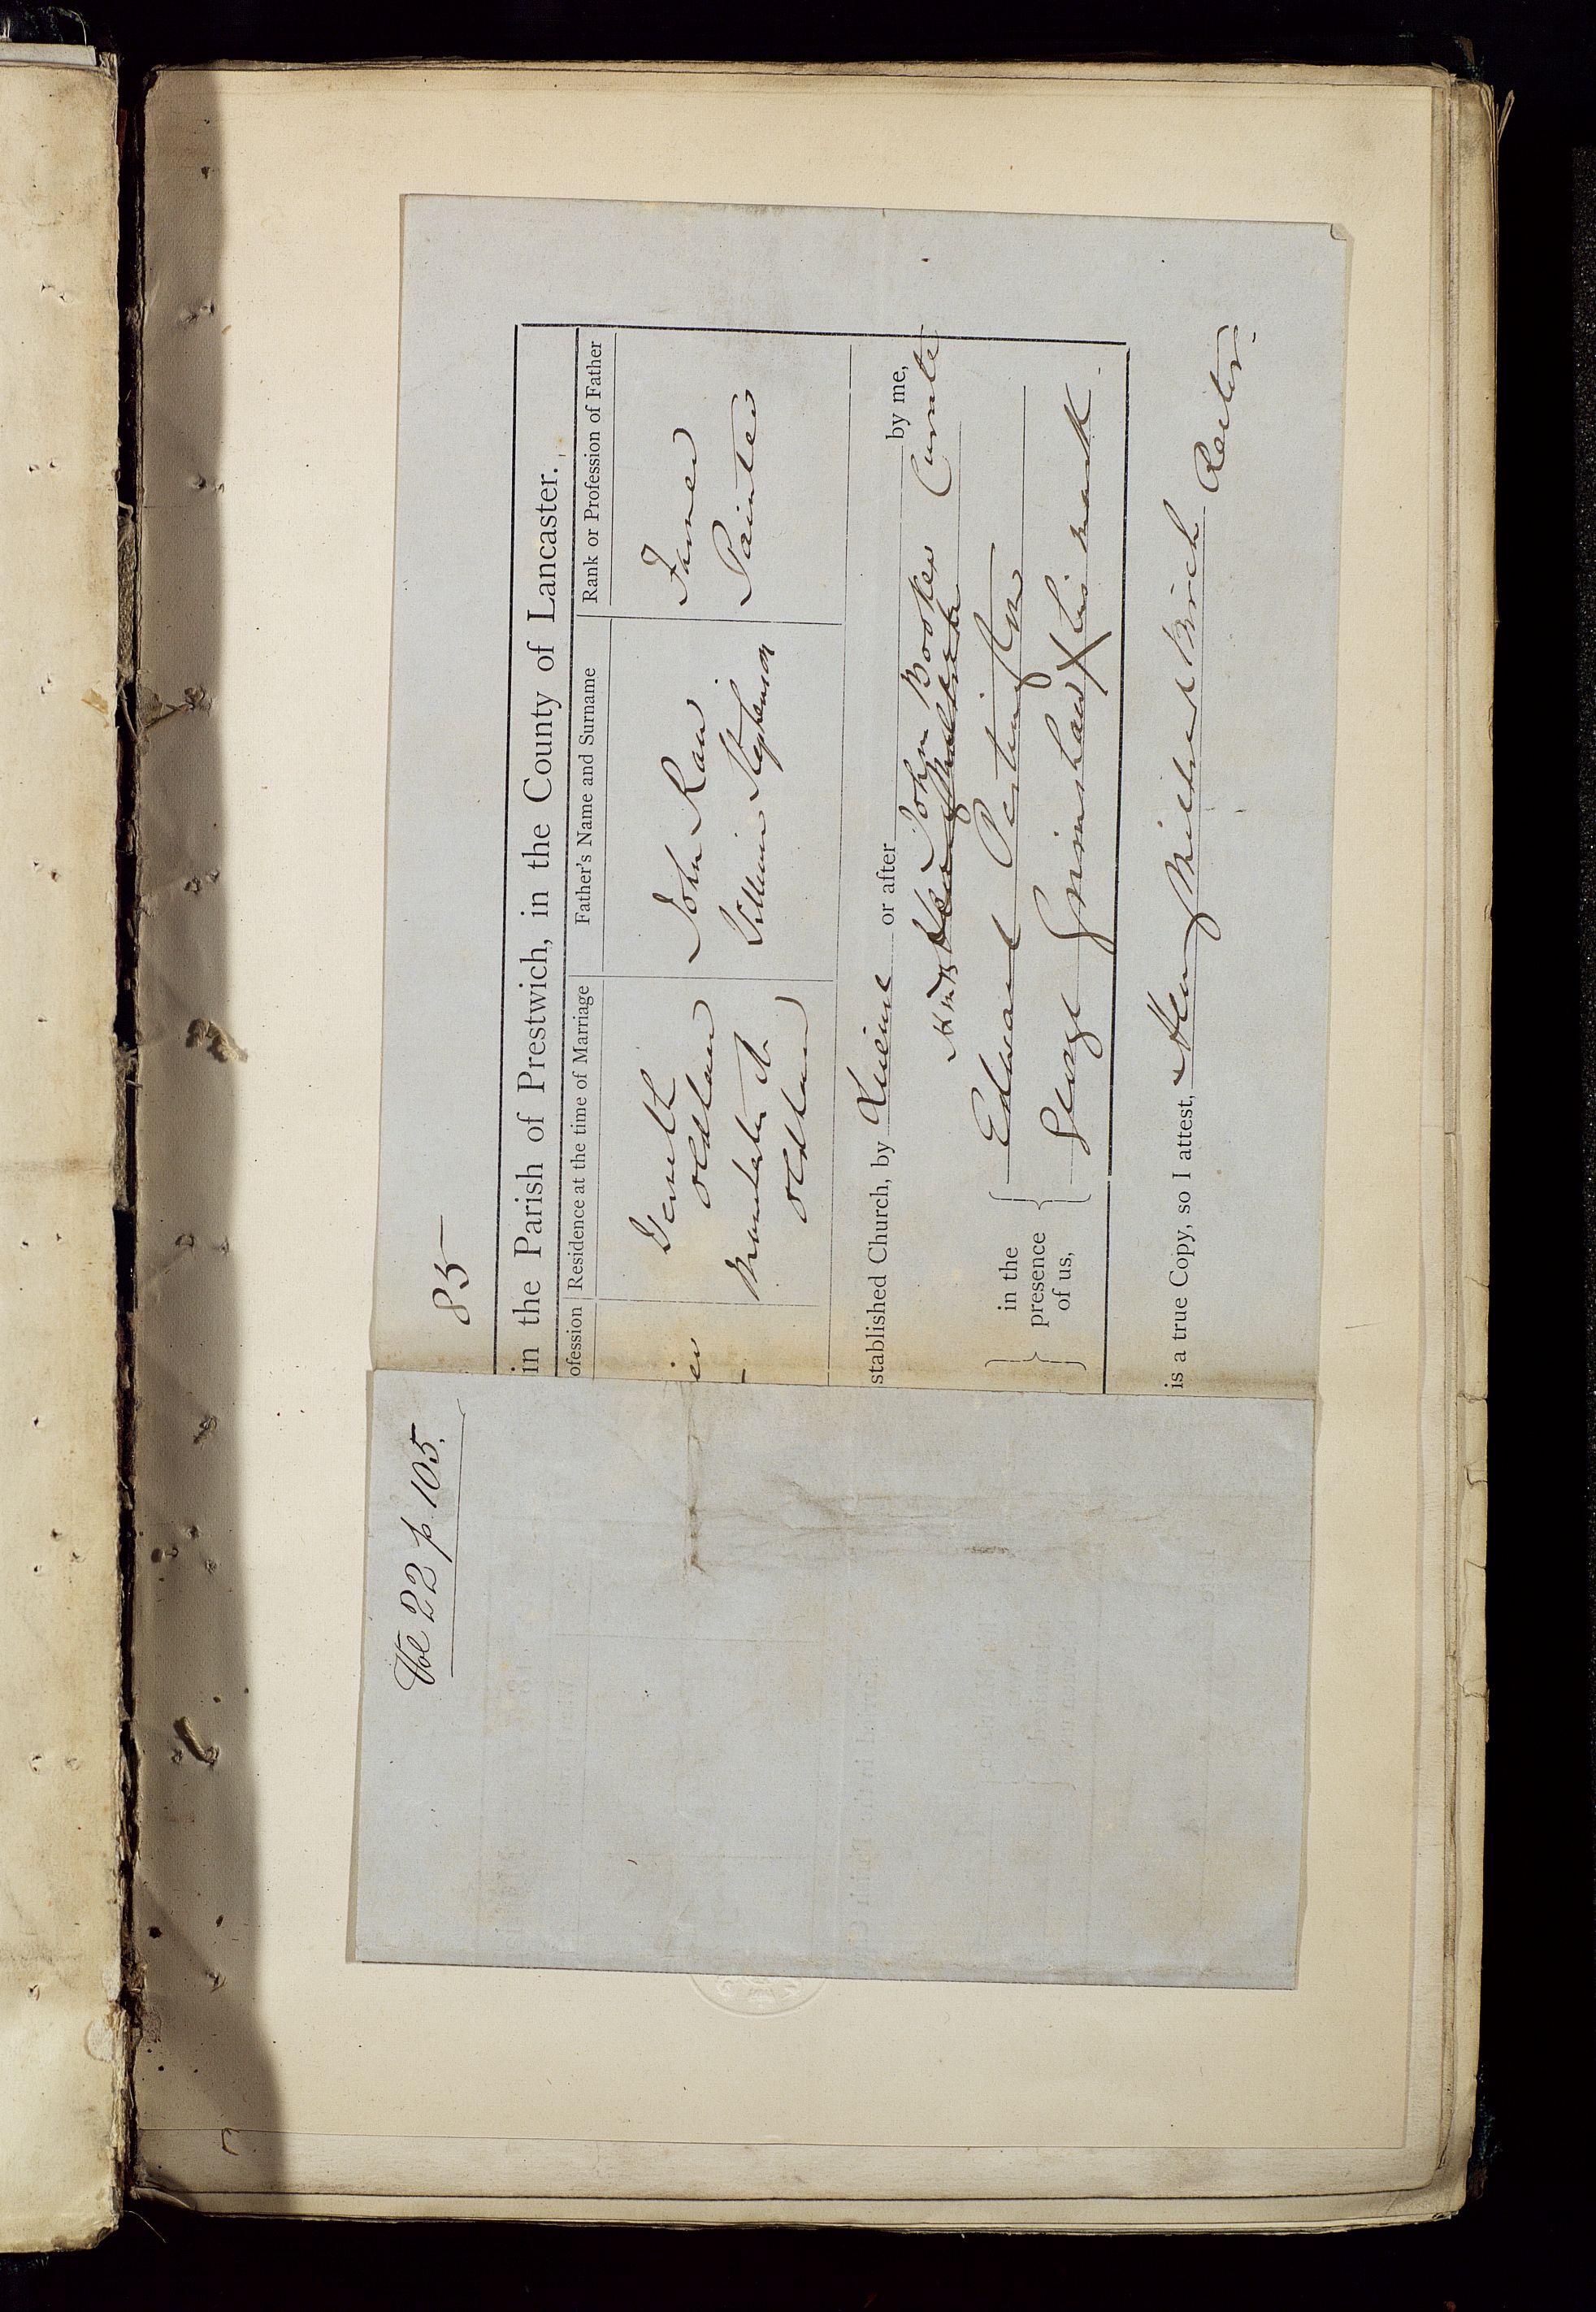 Vol 22 p. 105.
85
in the Parish of Prestwich, in the County of Lancaster.
ofession Residence at the time of Marriage Father's Name and Surname Rank or Profession of Father
Tonelth
Oldham John Raw Farmer
Manchester St
Oldham William Stephenson Painter
stablished Church, by License or after by me,
John Booker Curate
HMB
in the
presence
of us,
Edward Partington
George Grimshaw X his mark
is a true Copy, so I attest, Henry Mildred Birch Rector.